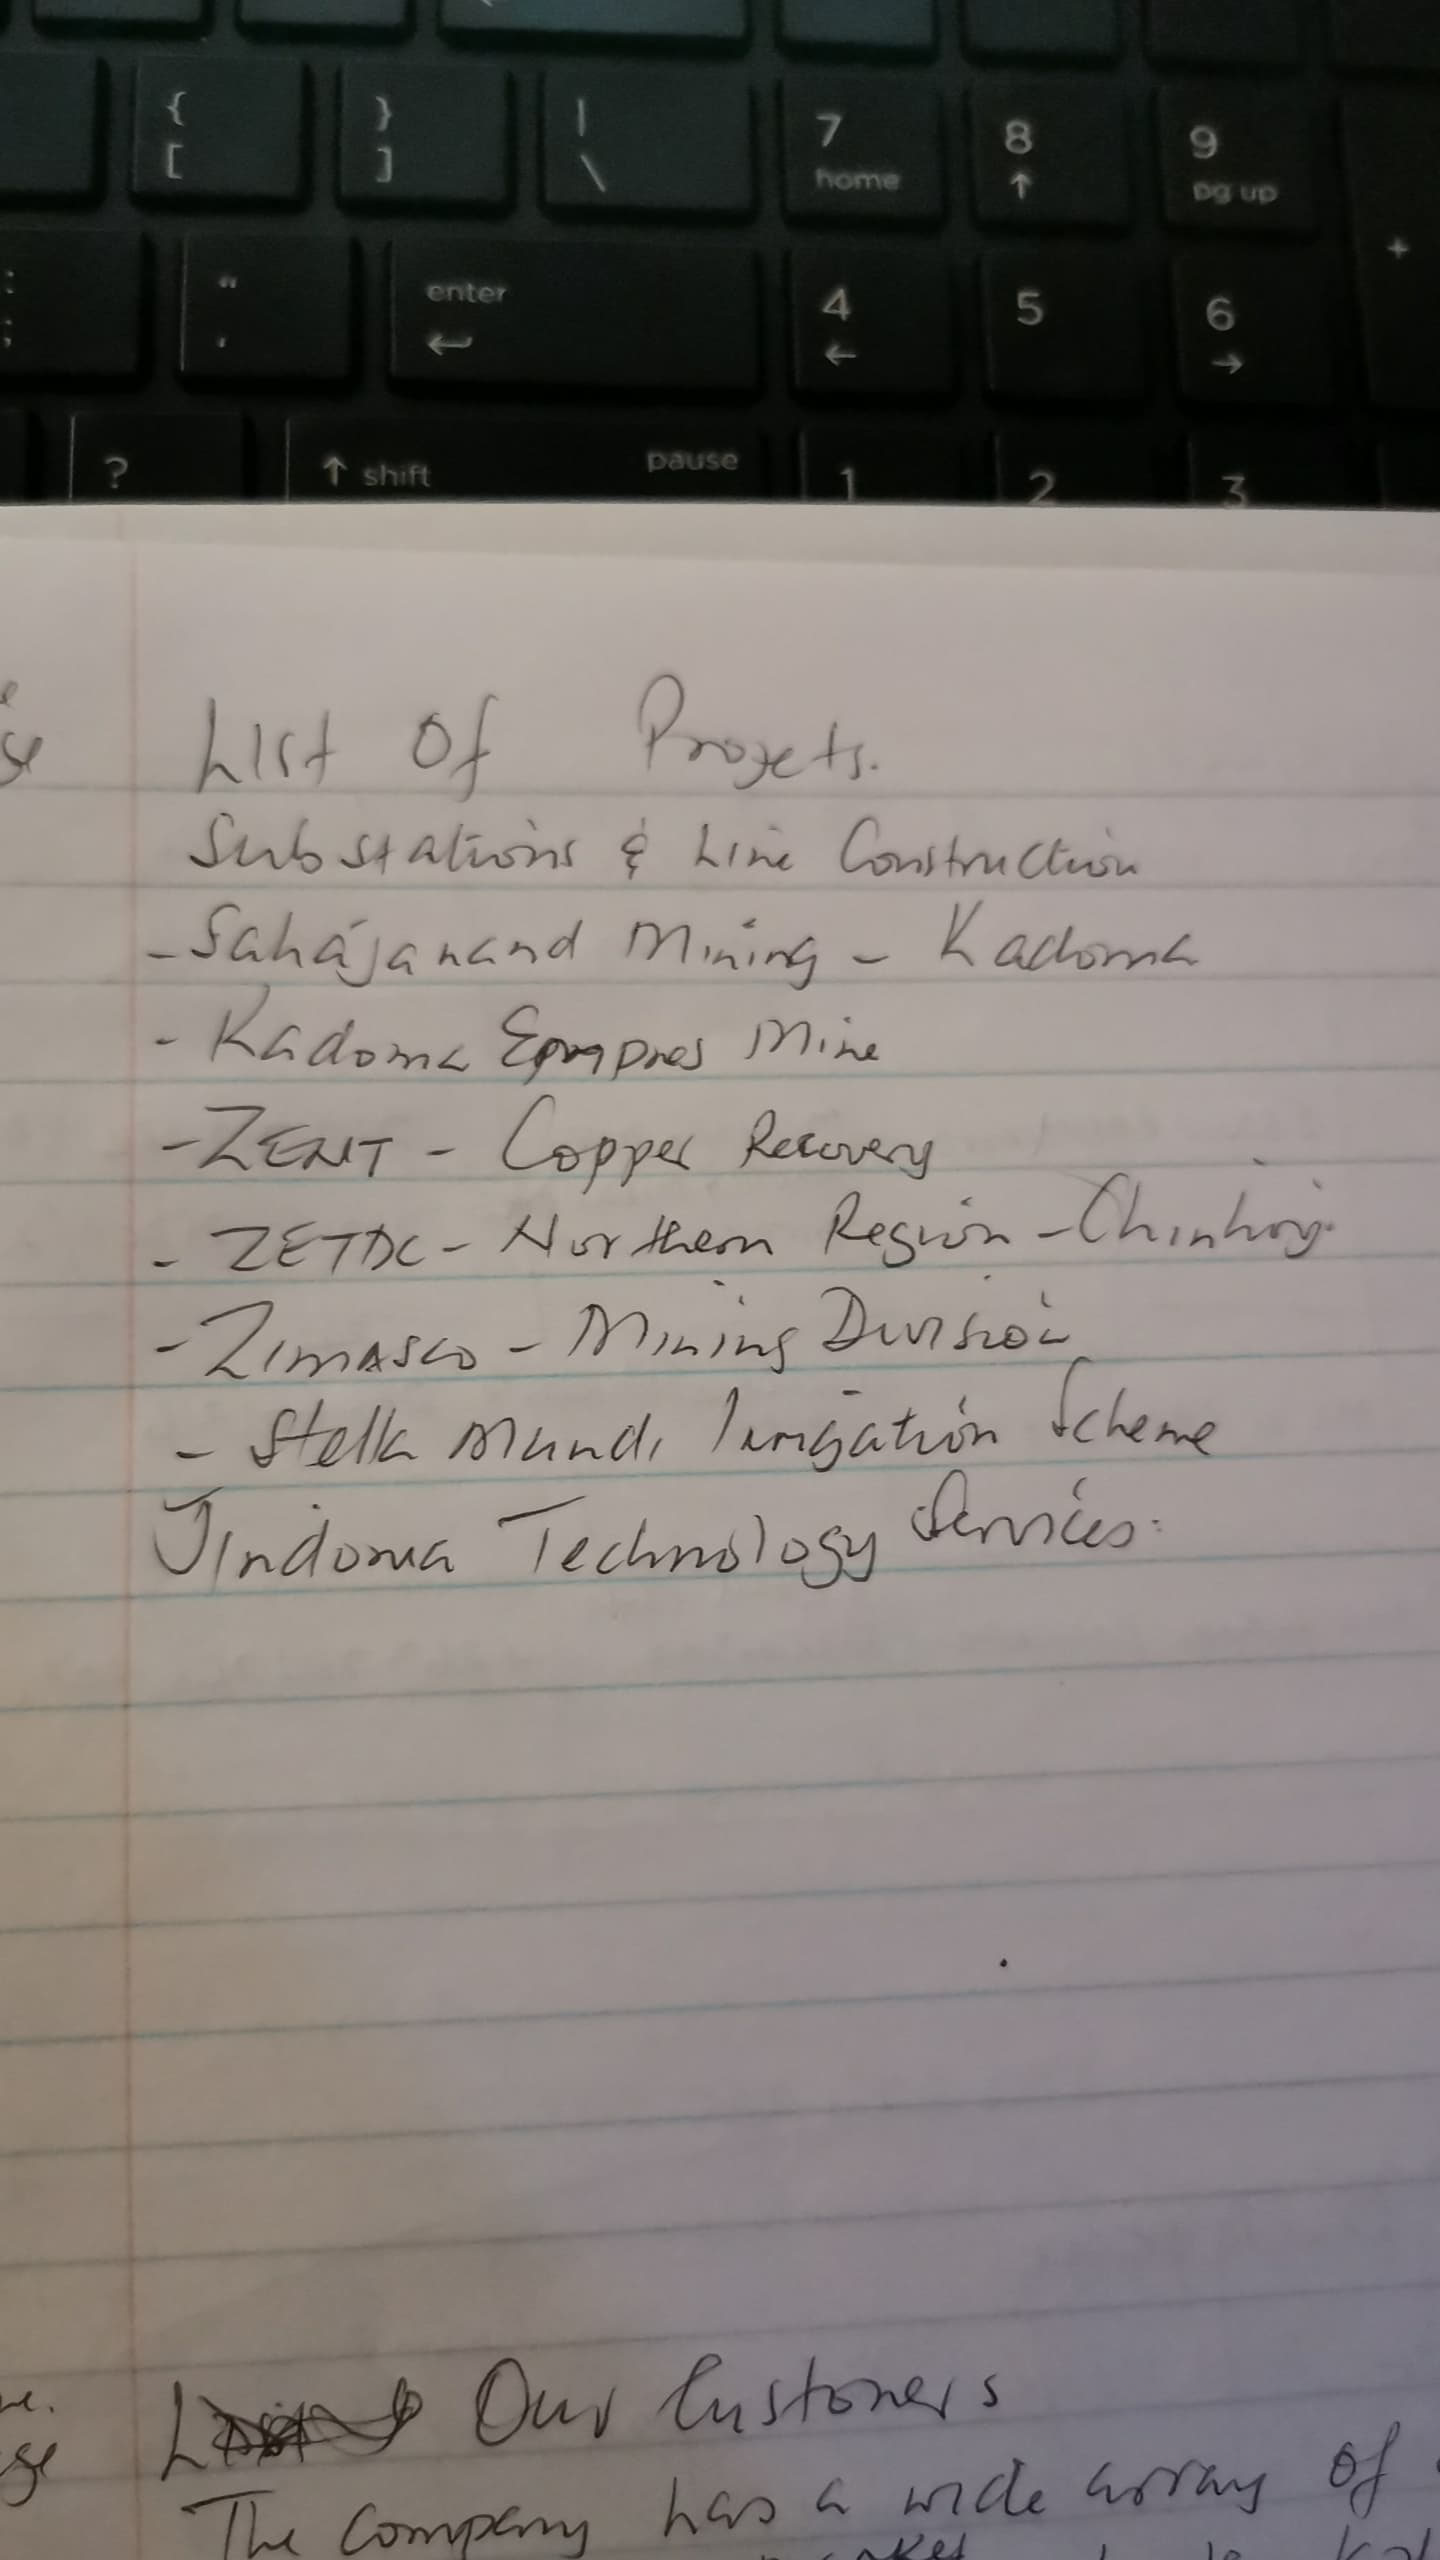 { } | 7 8 9
[ ] \ home ↑ pg up
+
: " enter 4 5 6
; ' ↵ ← →
? ↑ shift pause 1 2 3
List Of Projets.
Substations & Line Construction
- Sahajanand Mining - Kadoma
- Kadoma Mine
- ZENT - Copper Recovery
- ZETDC - Northern Region - Chinhoyi
- ZIMASCO - Mining Division
- Stella Mundi Irrigation Scheme
Jindoma Technology Services:
Our Customers
The company has a wide array of